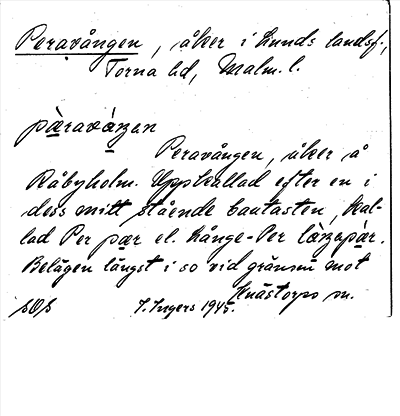 Peravången, åker i Lunds landsf.,
Torna hd, Malm. l.
pàravàŋen
Peravången, åker å
Råbyholm. Uppkallad efter en i
dess mitt stående bautasten, kal-
lad Per pær el. Långe-Per làŋapàr.
Belägen längst i so vid gränsen mot
Knästorps sn.
I. Ingers 1945.